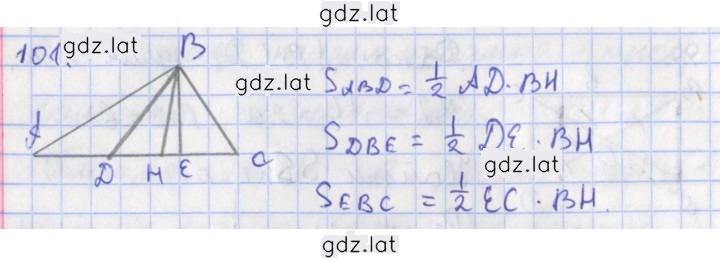 gdz.lat
101. gdz.lat
B
gdz.lat
A
D H E C
S ABD = 1/2 AD · BH
S DBE = 1/2 DE · BH
gdz.lat
S EBC = 1/2 EC · BH.
gdz.lat